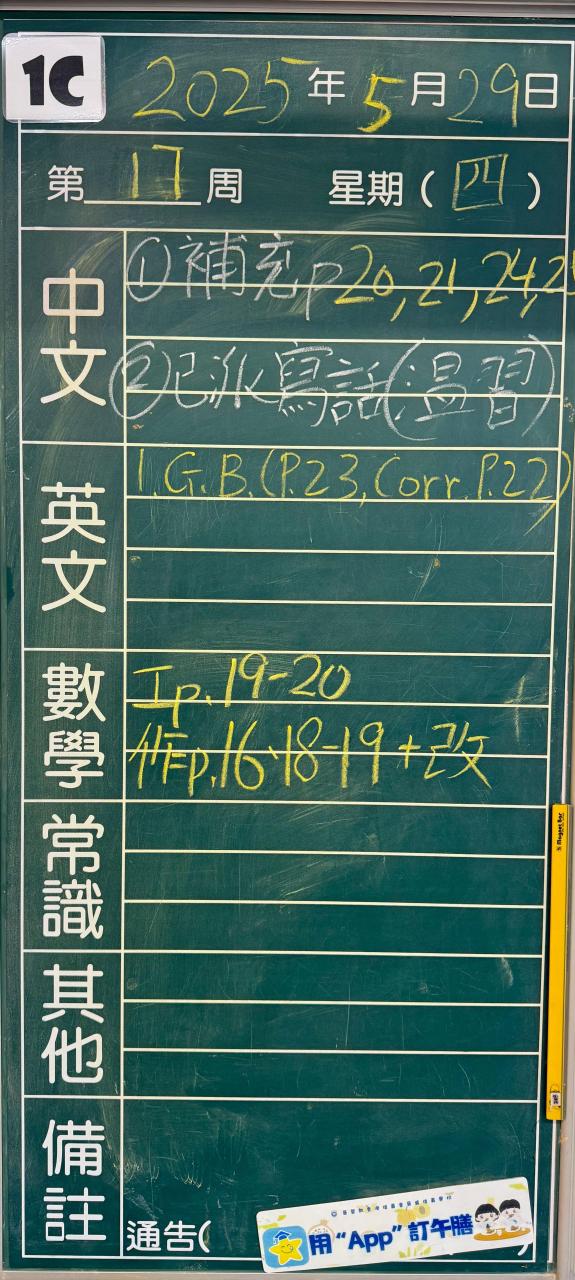 1C
2025年5月29日
第17周 星期(四)
中文
①補充p20,21,24,2
②已派寫話(温習)
英文
1.G.B.(P.23,Corr.P.22)
數學
工p.19-20
作p.16、18-19+改
常識
其他
備註
通告(
用“App”訂午膳
Magnet Bar